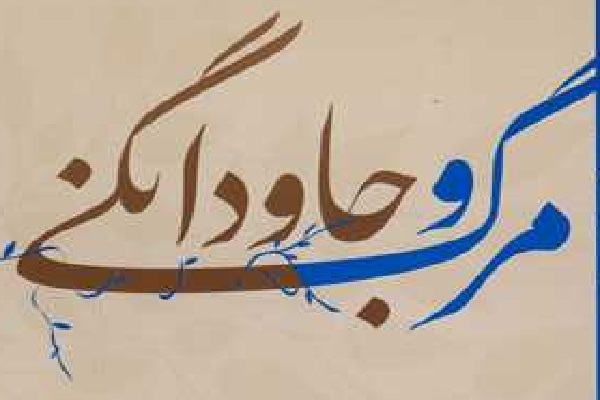 مرگ و جاودانگی